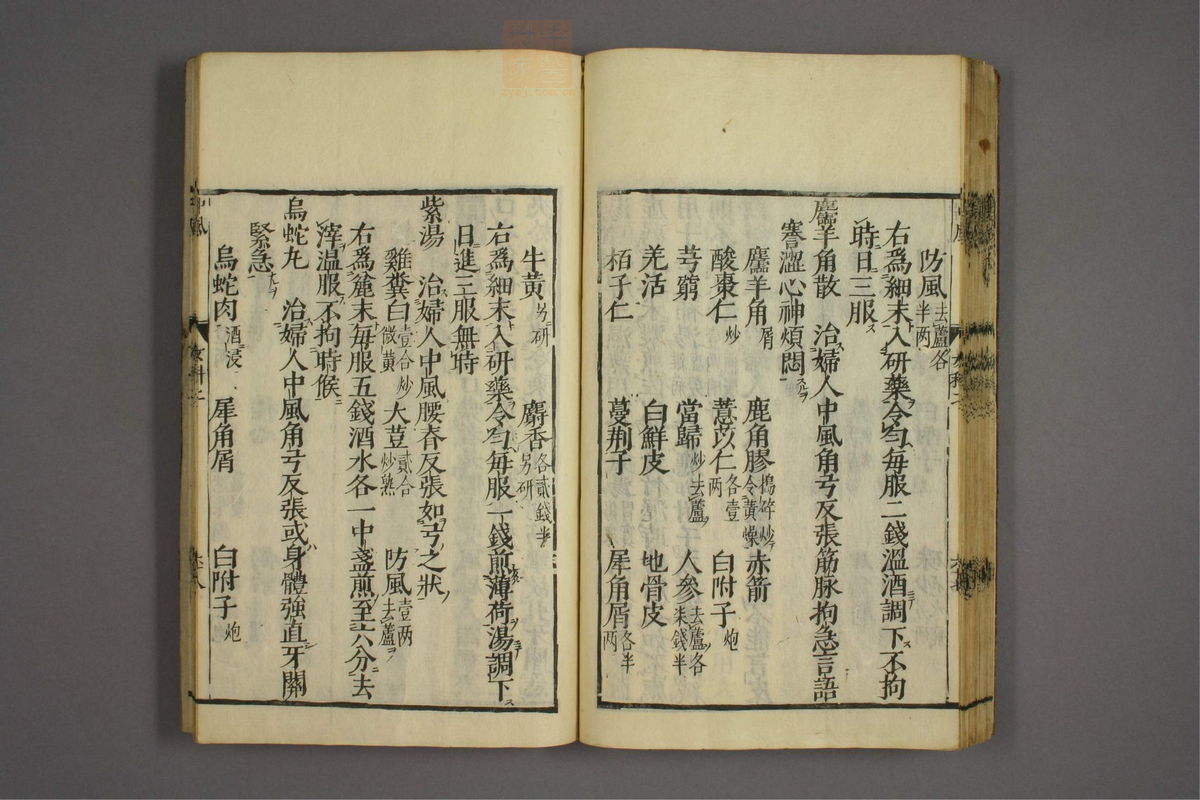 防風去蘆各半两
右為細末入研藥令勻每服二錢溫酒調下不拘
時日三服
麢羊角散 治婦人中風角弓反張筋脉拘急言語
謇澀心神煩悶
麢羊角屑 鹿角膠搗碎炒令黃燥 赤箭
酸棗仁炒 薏苡仁各壹两 白附子炮
芎藭 當歸炒去蘆 人參去蘆各柒錢半
羌活 白鮮皮 地骨皮
栢子仁 蔓荆子 犀角屑各半两
牛黃另研 麝香各貳錢半另研
右為細末入研藥令勻每服一錢煎薄荷湯調下
日進三服無時
紫湯 治婦人中風腰脊反張如弓之狀
雞糞白壹合炒微黃 大荳貳合炒熟 防風壹两去蘆
右為麄末每服五錢酒水各一中盞煎至六分去
滓温服不拘時候
烏蛇丸 治婦人中風角弓反張或身體強直牙關
緊急
烏蛇肉酒浸 犀角屑 白附子炮